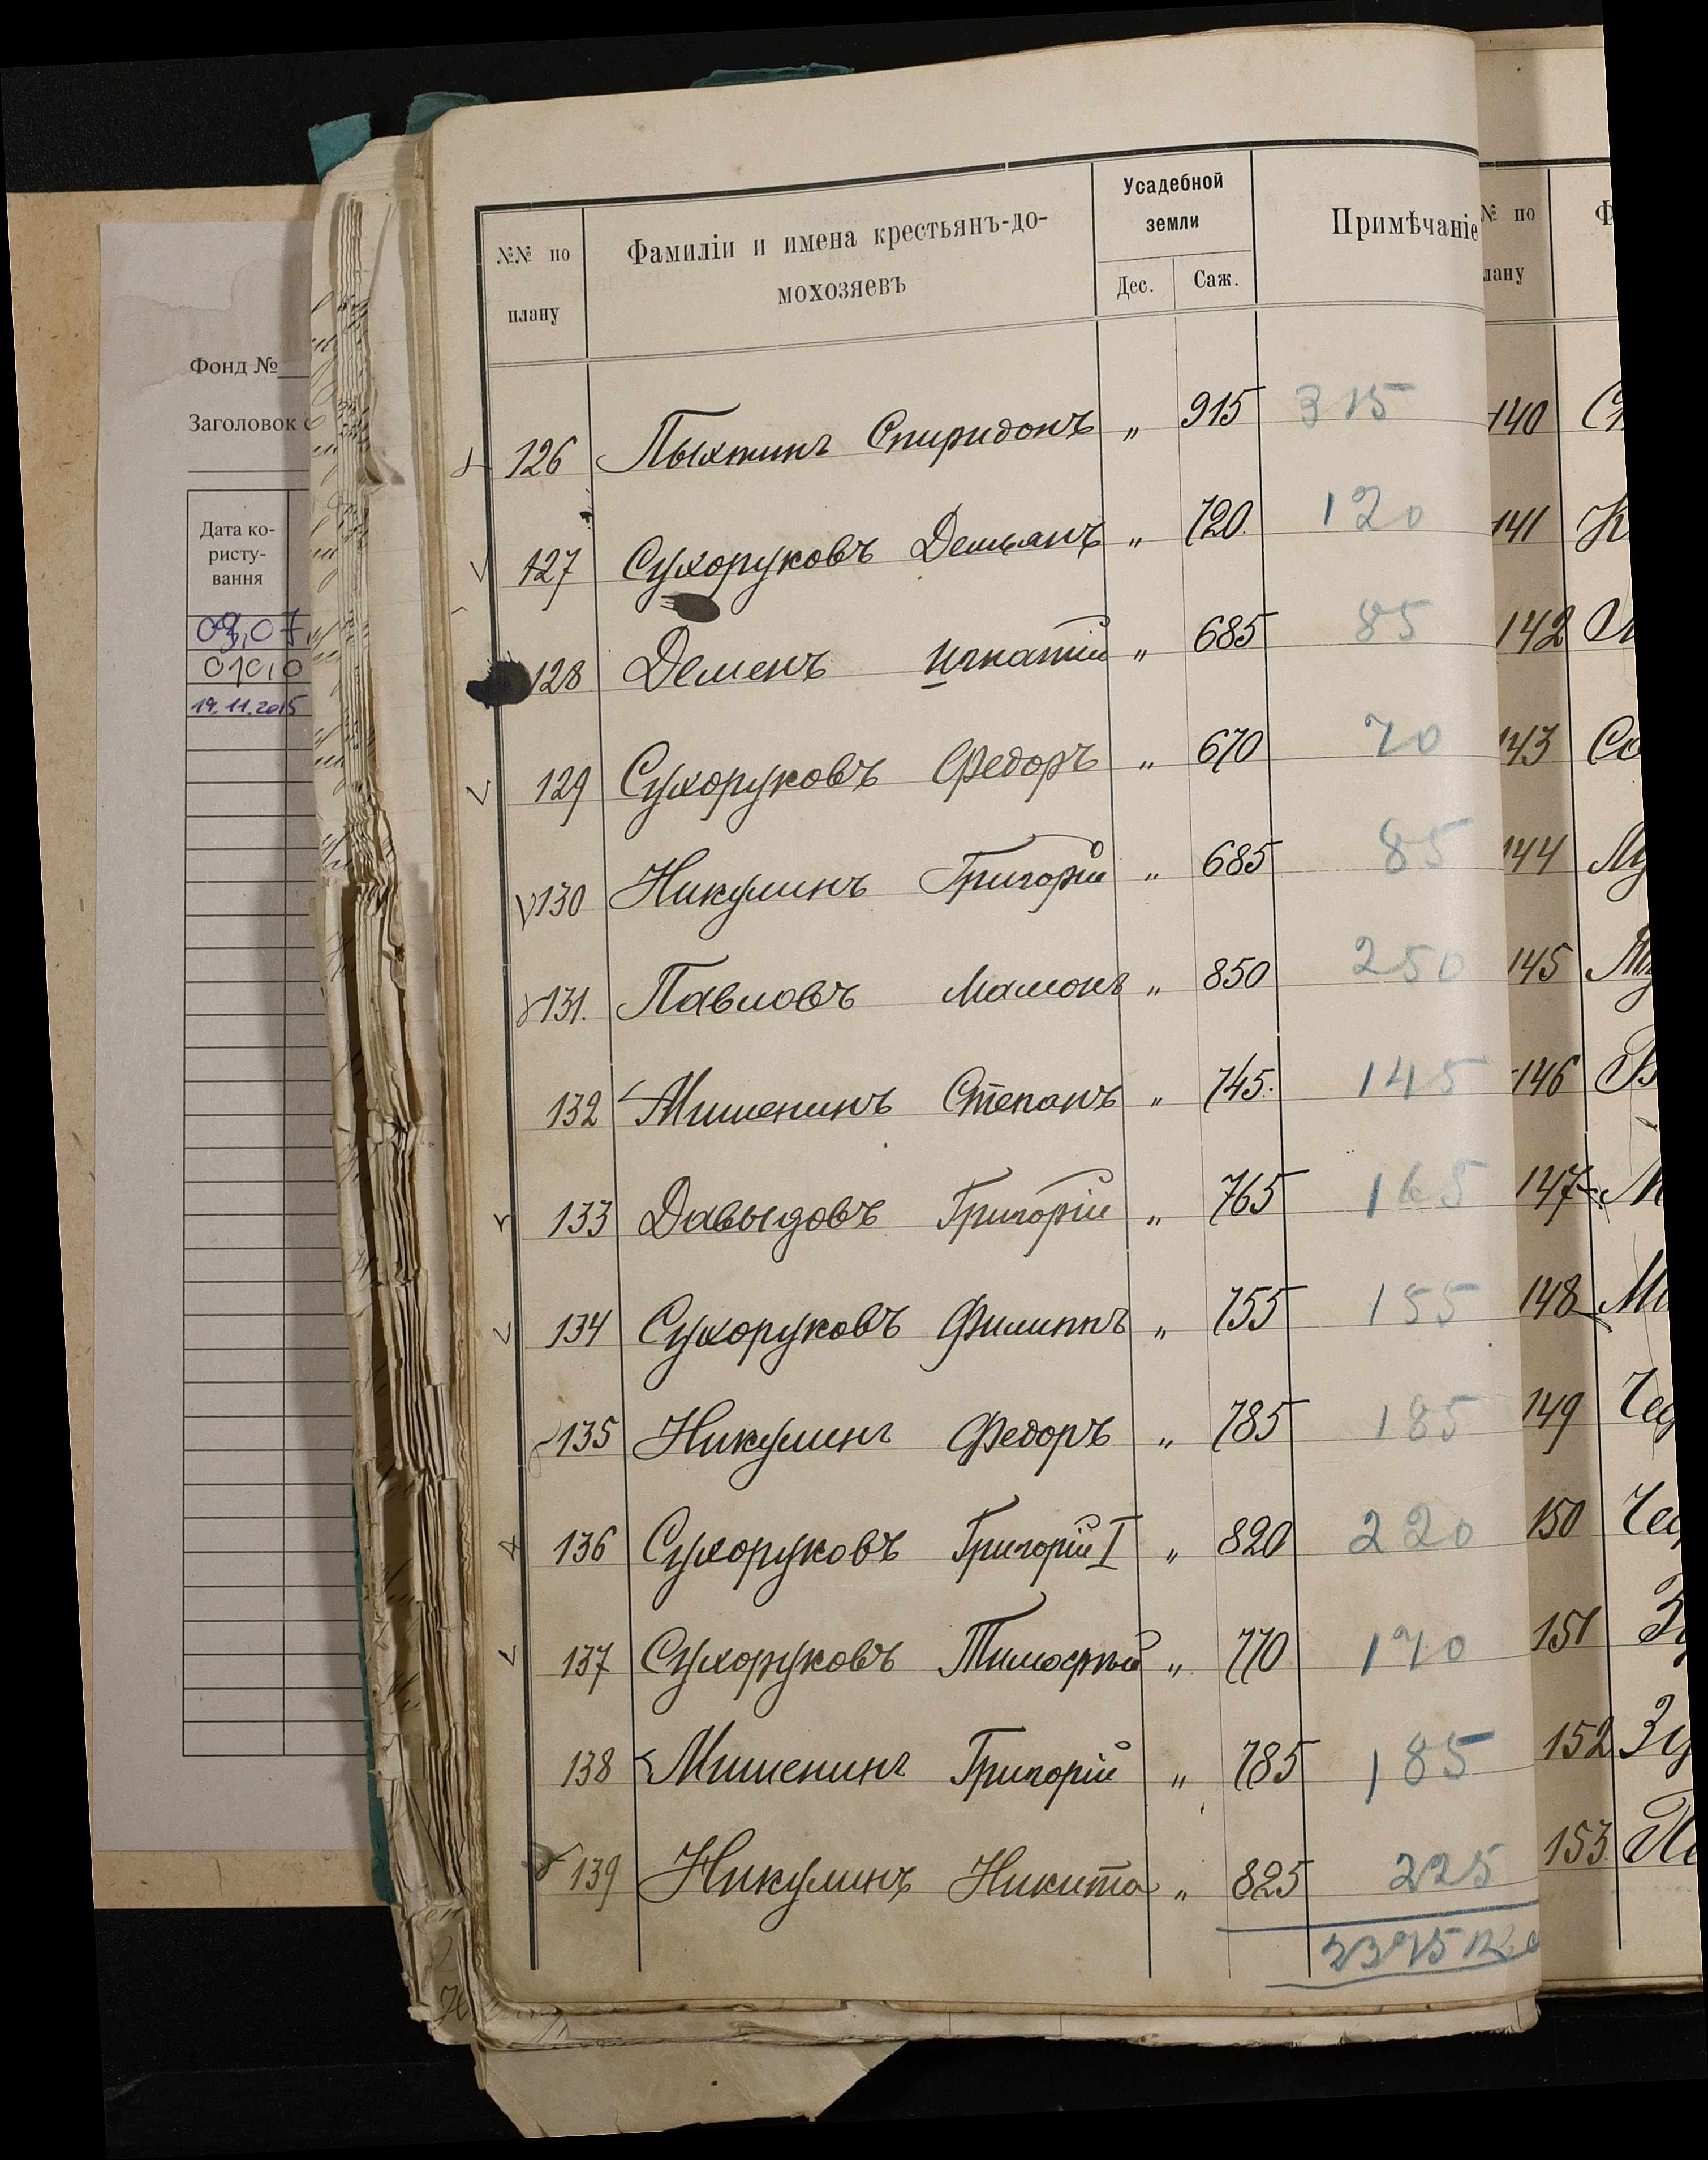 Фонд №
Заголовок с
Дата ко-
ристу-
вання
09,07.
01.10,0
19.11.2015
№№ по
плану
Фамиліи и имена крестьянъ-до-
мохозяевъ
Усадебной
земли
Дес. Саж.
Примѣчаніе
126 Пыхтинъ Спиридонъ „ 915 315
127 Сухоруковъ Демьянъ „ 720. 120
128 Деменъ Игнатій „ 685 85
129 Сухоруковъ Федоръ „ 670 70
130 Никулинъ Григорій „ 685 85
131. Павловъ Мамонъ „ 850 250
132 Мишенинъ Степанъ „ 745. 145
133 Давыдовъ Григорій „ 765 165
134 Сухоруковъ Филиппъ „ 755 155
135 Никулинъ Федоръ „ 785 185
136 Сухоруковъ Григорій I „ 820 220
137 Сухоруковъ Тимофѣй „ 770 170
138 Мишенинъ Григорій „ 785 185
139 Никулинъ Никита „ 825 225
2375
№ по
лану
Ф
140 Сп
141 К
142
143 Со
144 Лу
145
146 В
147 М
148 Ми
149 Чед
150 Чед
151 Зу
152 Зу
153